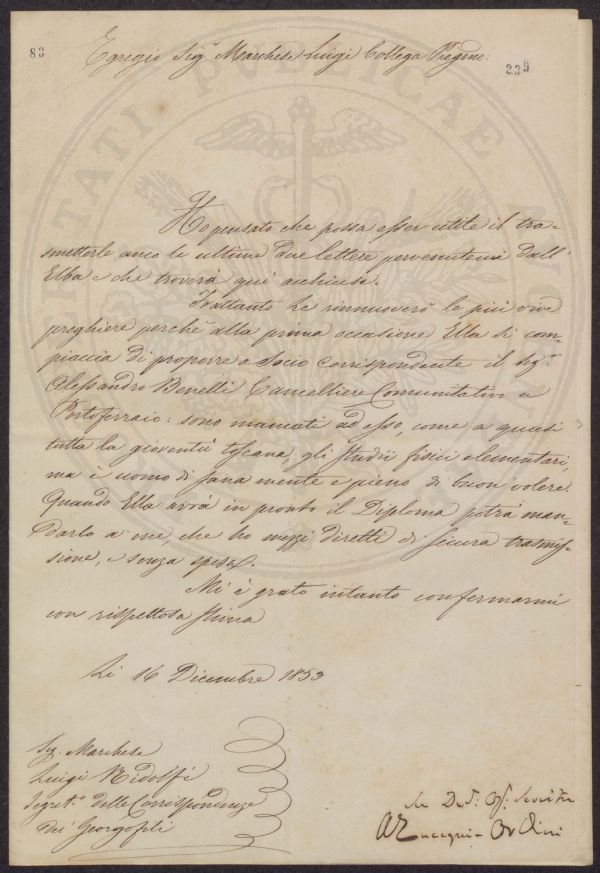 83
Egregio Sigr Marchese Luigi Collega Pregmo:
239
Ho pensato che possa esser utile il tra-
smetterle anco le ultime due lettere pervenutemi dall'
Elba e che troverà qui acchiuse.
Frattanto Le rinnuoverò le più vive
preghiere perchè alla prima occasione Ella si com-
piaccia di proporre a Socio corrispondente il Sigr
Alessandro Benelli Cancelliere Comunitativo a
Portoferraio: sono mancati ad esso, come a quasi
tutta la gioventù toscana, gli Studii fisici elementari,
ma è uomo di sana mente e pieno di buon volere.
Quando Ella avrà in pronto il Diploma potrà man-
darlo a me, che ho mezzi diretti di sicura trasmis-
sione, e senza spesa.
Mi è grato intanto confermarmi
con rispettosa stima
Li 16 Dicembre 1853
Sig. Marchese
Luigi Ridolfi
Segreto delle Corrispondenze
dei Georgofili
Orlandini
CIETATI PUBLICAE